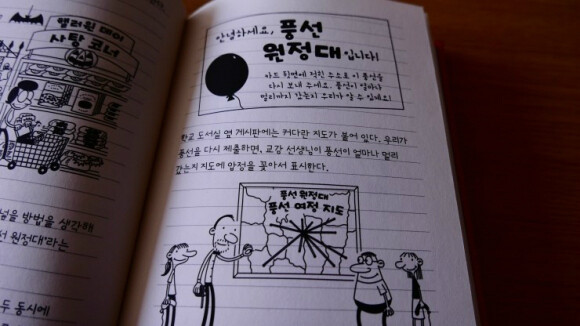 핼러윈 데이
사탕 코너
넘을 방법을 생각해
선 원정대'라는
두 동시에
안녕하세요, 풍선
원정대입니다!
카드 뒷면에 적힌 주소로 이 풍선을
다시 보내 주세요. 풍선이 얼마나
멀리까지 갔는지 우리가 알 수 있네요!
학교 도서실 옆 게시판에는 커다란 지도가 붙어 있다. 우리가
풍선을 다시 제출하면, 교감 선생님이 풍선이 얼마나 멀리
갔는지 지도에 압정을 꽂아서 표시한다.
풍선 원정대
풍선 여정 지도